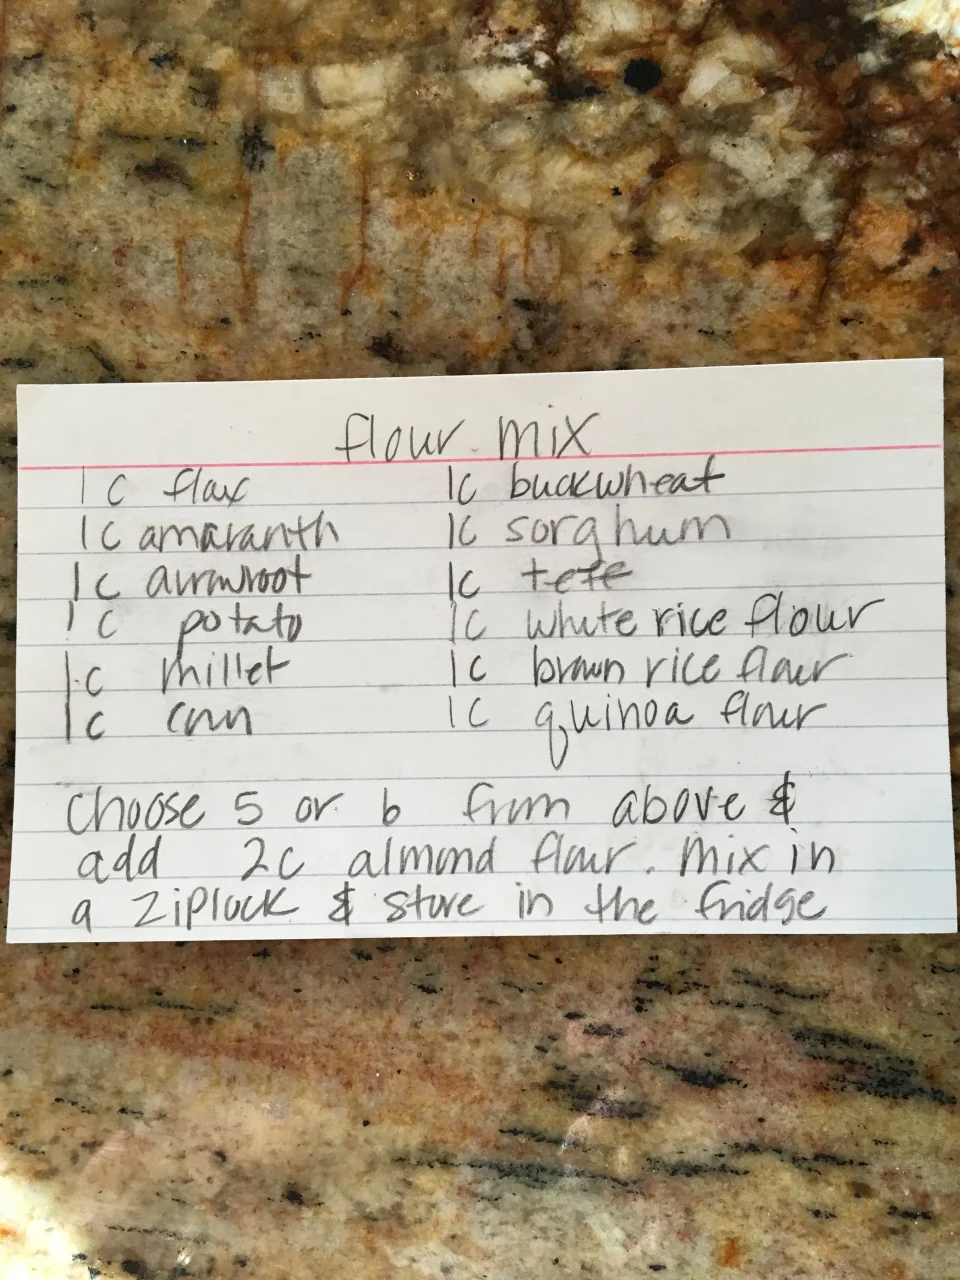 flour mix
1 c flax
1 c amaranth
1 c arrowroot
1 c potato
1 c millet
1 c corn
1c buckwheat
1c sorghum
1c tefe
1c white rice flour
1c brown rice flour
1c quinoa flour
Choose 5 or 6 from above &
add 2c almond flour. Mix in
a Ziplock & store in the fridge